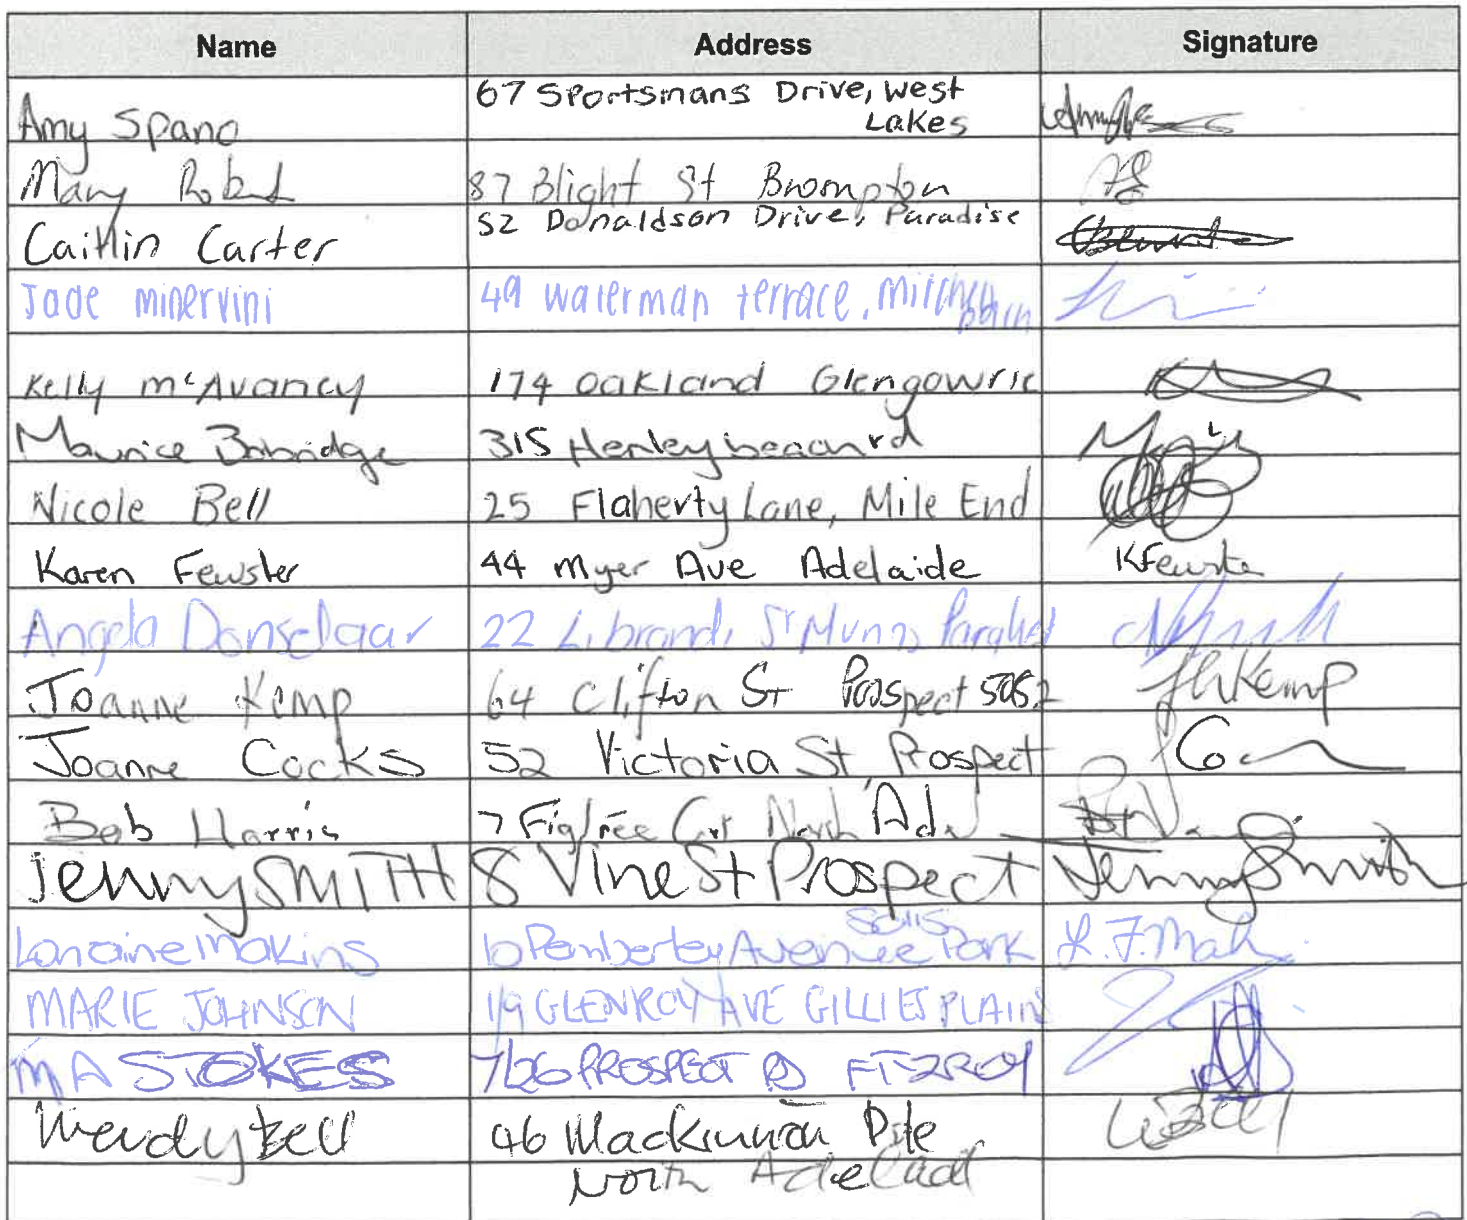 Name Address Signature
Amy Spano 67 Sportsmans Drive, West
Lakes
Mary 87 Blight St Brompton
Caitlin Carter 52 Donaldson Drive, Paradise
Jade minervini 49 waterman terrace, Mitchell
Kelly McAvaney 174 Oakland Glengowrie
Maurice 315 Henley beach rd
Nicole Bell 25 Flaherty Lane, Mile End
Karen Fewster 44 Myer Ave Adelaide KFewster
Angela Donselaar 22 St Munno Para
Joanne Kemp 64 Clifton St Prospect 5082 Kemp
Joanne Cocks 52 Victoria St Prospect
Bob Harris 7 Figtree Crt North Ad
Jenny SMITH 8 Vine St Prospect Jenny Smith
Lorraine Makins 10 Pemberley Avenue Park L.F.Mak
MARIE JOHNSON 19 GLENROY AVE GILLIES PLAINS
MA STOKES 7/26 PROSPECT RD FITZROY
Wendy Bell 46 Mackinnon Pde
North Adelaid